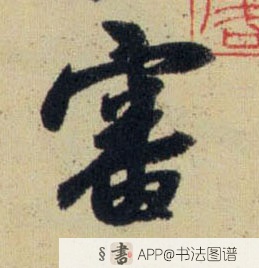 審
§書 APP@书法图谱